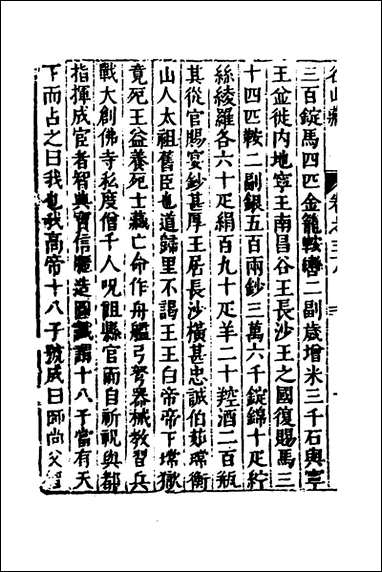 名山藏 卷之三八
三百錠馬四匹金籠鞍轡二副歲增米三千石與寧
王並徙內地寧王南昌谷王長沙王之國復賜馬三
十四匹鞍二副銀五百兩鈔三萬六千錠錦十疋紵
絲綾羅各六十疋絹百九十疋羊二十羫酒二百瓶
其從官賜宴鈔甚厚王居長沙橫甚忠誠伯茹瑺衡
山人太祖舊臣也道歸里不謁王王白帝帝下瑺獄
竟死王益養死士藏亡命作舟艦弓弩器械教習兵
戰大創佛寺私度僧千人呪詛縣官而自祈祝與都
指揮成官者智與寶信譸造圖讖謂十八子當有天
下而占之曰我也我高帝十八子號成曰師尚父智